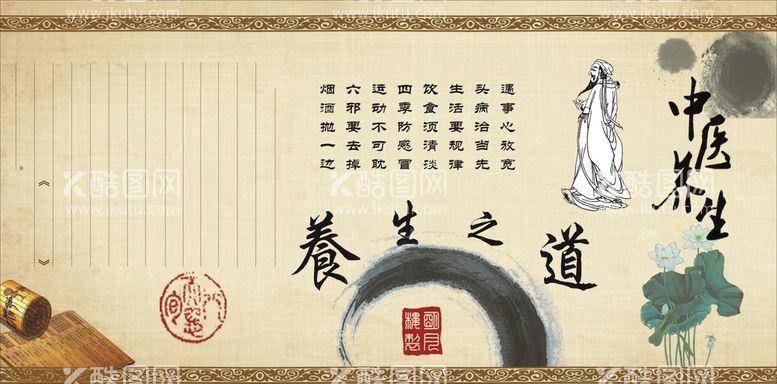 中医养生
遇事心放宽
头病治当先
生活要规律
饮食须清淡
四季防感冒
运动不可耽
六邪要去掉
烟酒抛一边
養生之道
《 》
。
酷图网
www.ikutu.com